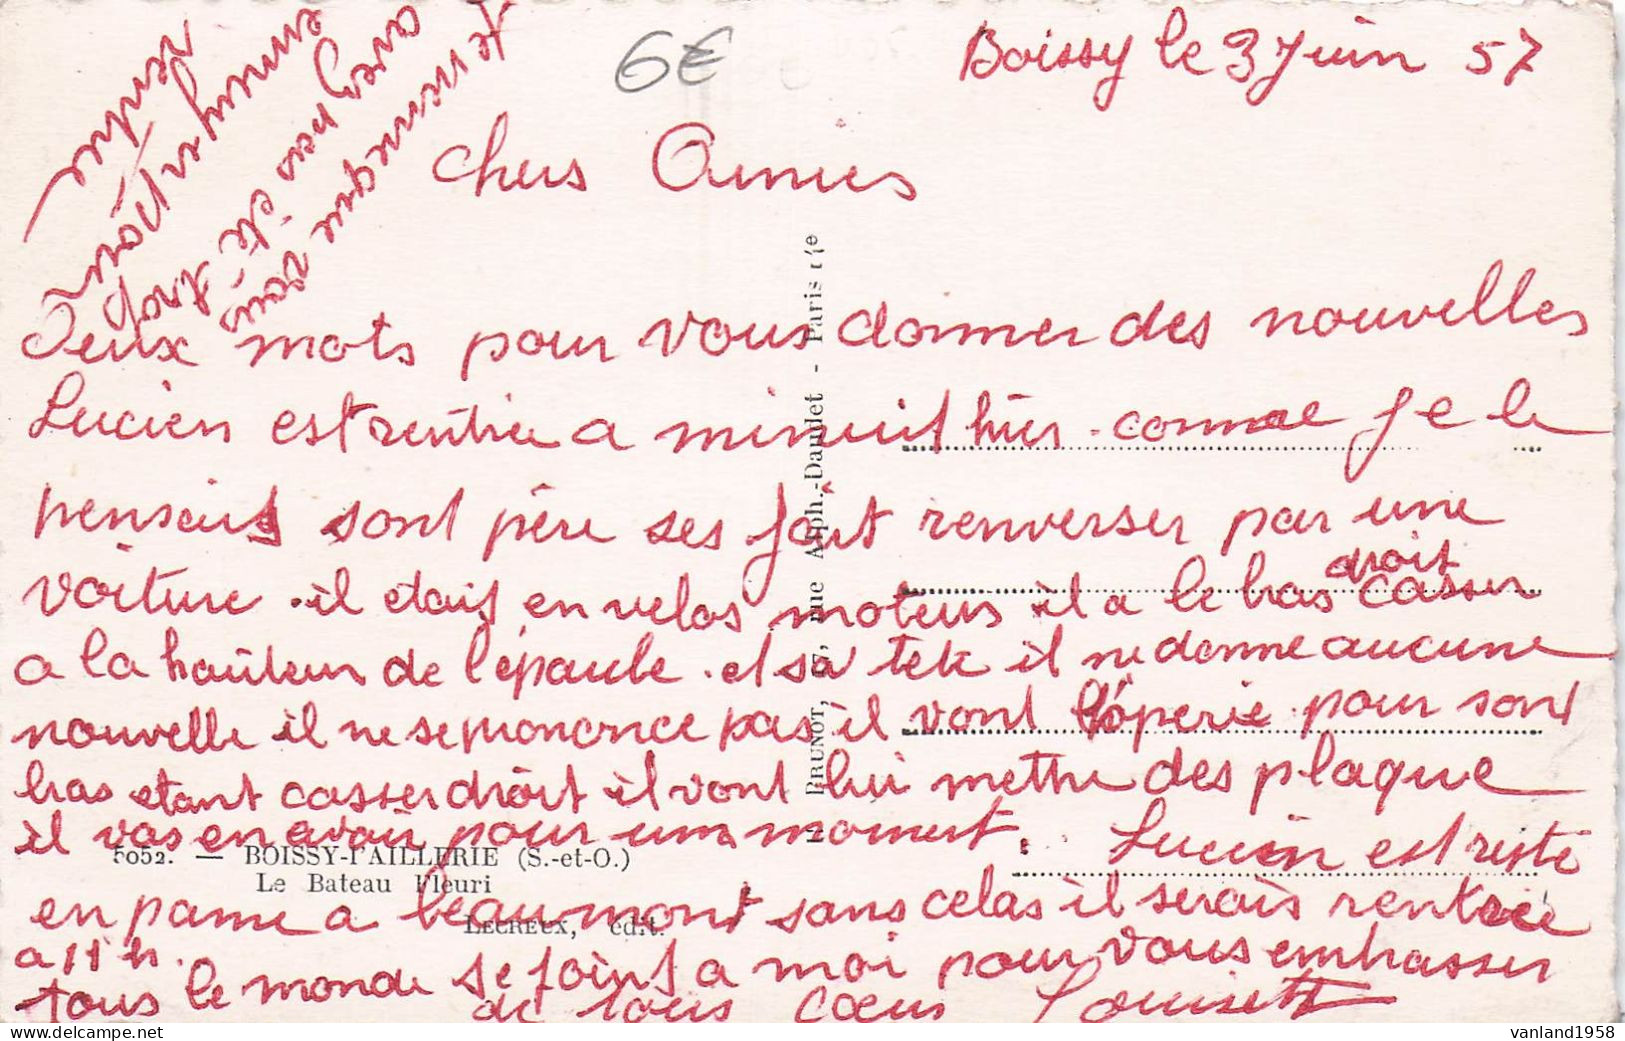 6€
Boissy le 3 Juin 57
Chers Amies
Deux mots pour vous donner des nouvelles
Lucien est rentrée a minuit hier. comme je le
pensait sont père ses fait renverser par une
voiture. il etait en velos moteurs il a le bras droit casser
a la hauteur de l'épaule. et sa tete il ne donne aucune
nouvelle il ne se prononce pas il vont l'óperie pour sont
bras etant casser droit il vont lui mettre des plaque
il vas en avoir pour un moment. Lucien est resté
en panne a beaumont sans celas il serais rentrée
a 11 h.
tous le monde se joint a moi pour vous embrasser
de tous cœur Louisette
je m'en
avec
pas été trop
ennuyer
5052. — BOISSY-l'AILLERIE (S.-et-O.)
Le Bateau Fleuri
LECREUX, édit.
BRUNOT, rue Alph.-Daudet - Paris 14e
vanland1958